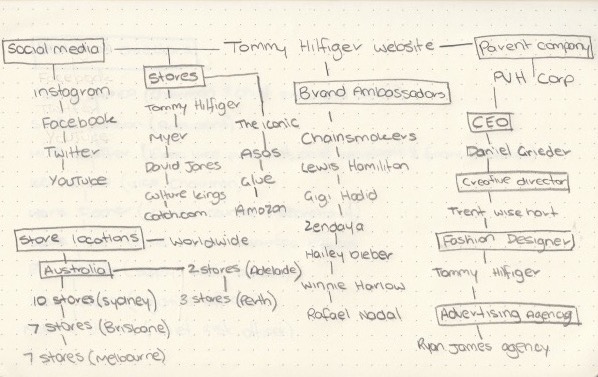 Social media
Tommy Hilfiger website
Parent company
instagram
Facebook
Twitter
YOUTUBE
Stores
Tommy Hilfiger
Myer
David Jones
Culture kings
Catch.com
The iconic
ASOS
Glue
Amazon
Brand Ambassadors
Chainsmokers
Lewis Hamilton
Gigi Hadid
Zendaya
Hailey bieber
Winnie Harlow
Rafael Nadal
PVH Corp
CEO
Daniel Grieder
Creative director
Trent wisehart
Fashion Designer
Tommy Hilfiger
Advertising Agency
Ryan James agency
Store locations
worldwide
Australia
2 stores (Adelaide)
3 stores (Perth)
10 stores (sydney)
7 stores (Brisbane)
7 stores (Melbourne)